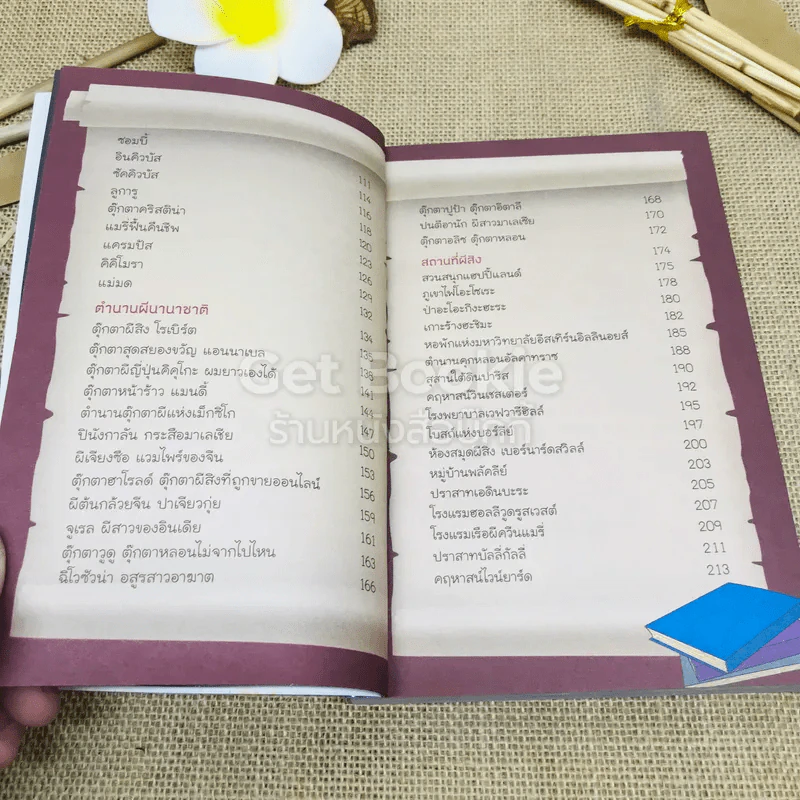 ซอมบี้ 111
อินคิวบัส 114
ซัคคิวบัส 116
ลูการู 118
ตุ๊กตาคริสติน่า 120
แมรี่ฟื้นคืนชีพ 123
แครมปัส 126
คิคิโมรา 129
แม่มด 132
ตำนานผีนานาชาติ 134
ตุ๊กตาผีสิง โรเบิร์ต 135
ตุ๊กตาสุดสยองขวัญ แอนนาเบล 138
ตุ๊กตาผีญี่ปุ่นคิคุโกะ ผมยาวเองได้ 141
ตุ๊กตาหน้าร้าว แมนดี้ 144
ตำนานตุ๊กตาผีแห่งเม็กซิโก 147
ปินังกาลัน กระสือมาเลเซีย 150
ผีเจียงซือ แวมไพร์ของจีน 153
ตุ๊กตาฮาโรลด์ ตุ๊กตาผีสิงที่ถูกขายออนไลน์ 156
ผีต้นกล้วยจีน ปาเจียวกุ่ย 159
จูเรล ผีสาวของอินเดีย 161
ตุ๊กตาวูดู ตุ๊กตาหลอนไม่จากไปไหน 163
ฉิโวชัวน่า อสูรสาวอาฆาต 166
ตุ๊กตาปูป้า ตุ๊กตาอิตาลี 168
ปนตีอานัก ผีสาวมาเลเซีย 170
ตุ๊กตาอลิซ ตุ๊กตาหลอน 172
สถานที่ผีสิง 174
สวนสนุกแฮปปี้แลนด์ 175
ภูเขาไฟโอะโซเระ 178
ป่าอะโอะกิงะฮะระ 180
เกาะร้างฮะชิมะ 182
หอพักแห่งมหาวิทยาลัยอีสเทิร์นอิลลินอยส์ 185
ตำนานคุกหลอนอัลคาทราซ 188
สุสานใต้ดินปารีส 190
คฤหาสน์วินเชสเตอร์ 192
โรงพยาบาลเวฟวารีฮิลล์ 195
โบสถ์แห่งบอร์ลีย์ 197
ห้องสมุดผีสิง เบอร์นาร์ดสวิลล์ 200
หมู่บ้านพลัคลีย์ 203
ปราสาทเอดินบะระ 205
โรงแรมฮอลลีวูดรูสเวสต์ 207
โรงแรมเรือผีควีนแมรี่ 209
ปราสาทบัลลี่กัลลี่ 211
คฤหาสน์ไวน์ยาร์ด 213
Get Bookie
ร้านหนังสือเก็ท